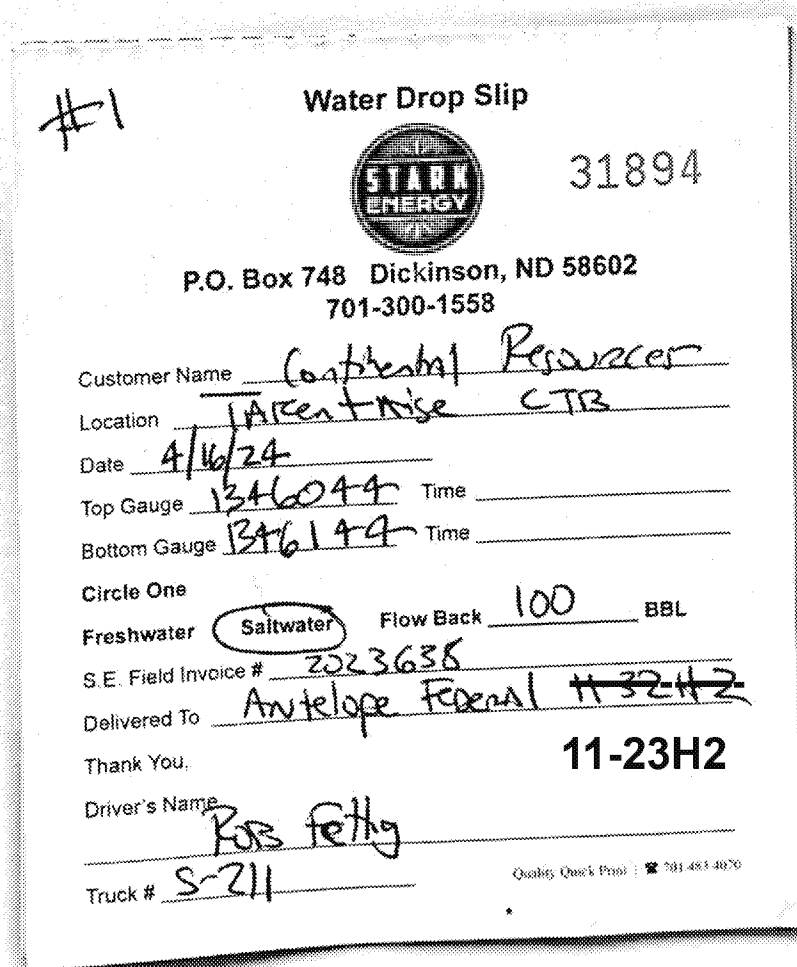 #1
Water Drop Slip
STARK
ENERGY
31894
P.O. Box 748 Dickinson, ND 58602
701-300-1558
Customer Name Continental Resources
Location CTB
Date 4/16/24
Top Gauge 1346044 Time
Bottom Gauge 1346144 Time
Circle One
Freshwater Saltwater Flow Back 100 BBL
S.E. Field Invoice # 2023638
Delivered To Antelope Federal 11-32-H2
11-23H2
Thank You,
Driver's Name
Rob Fettig
Truck # S-211
Quality Quick Print ☎ 701-483-4070